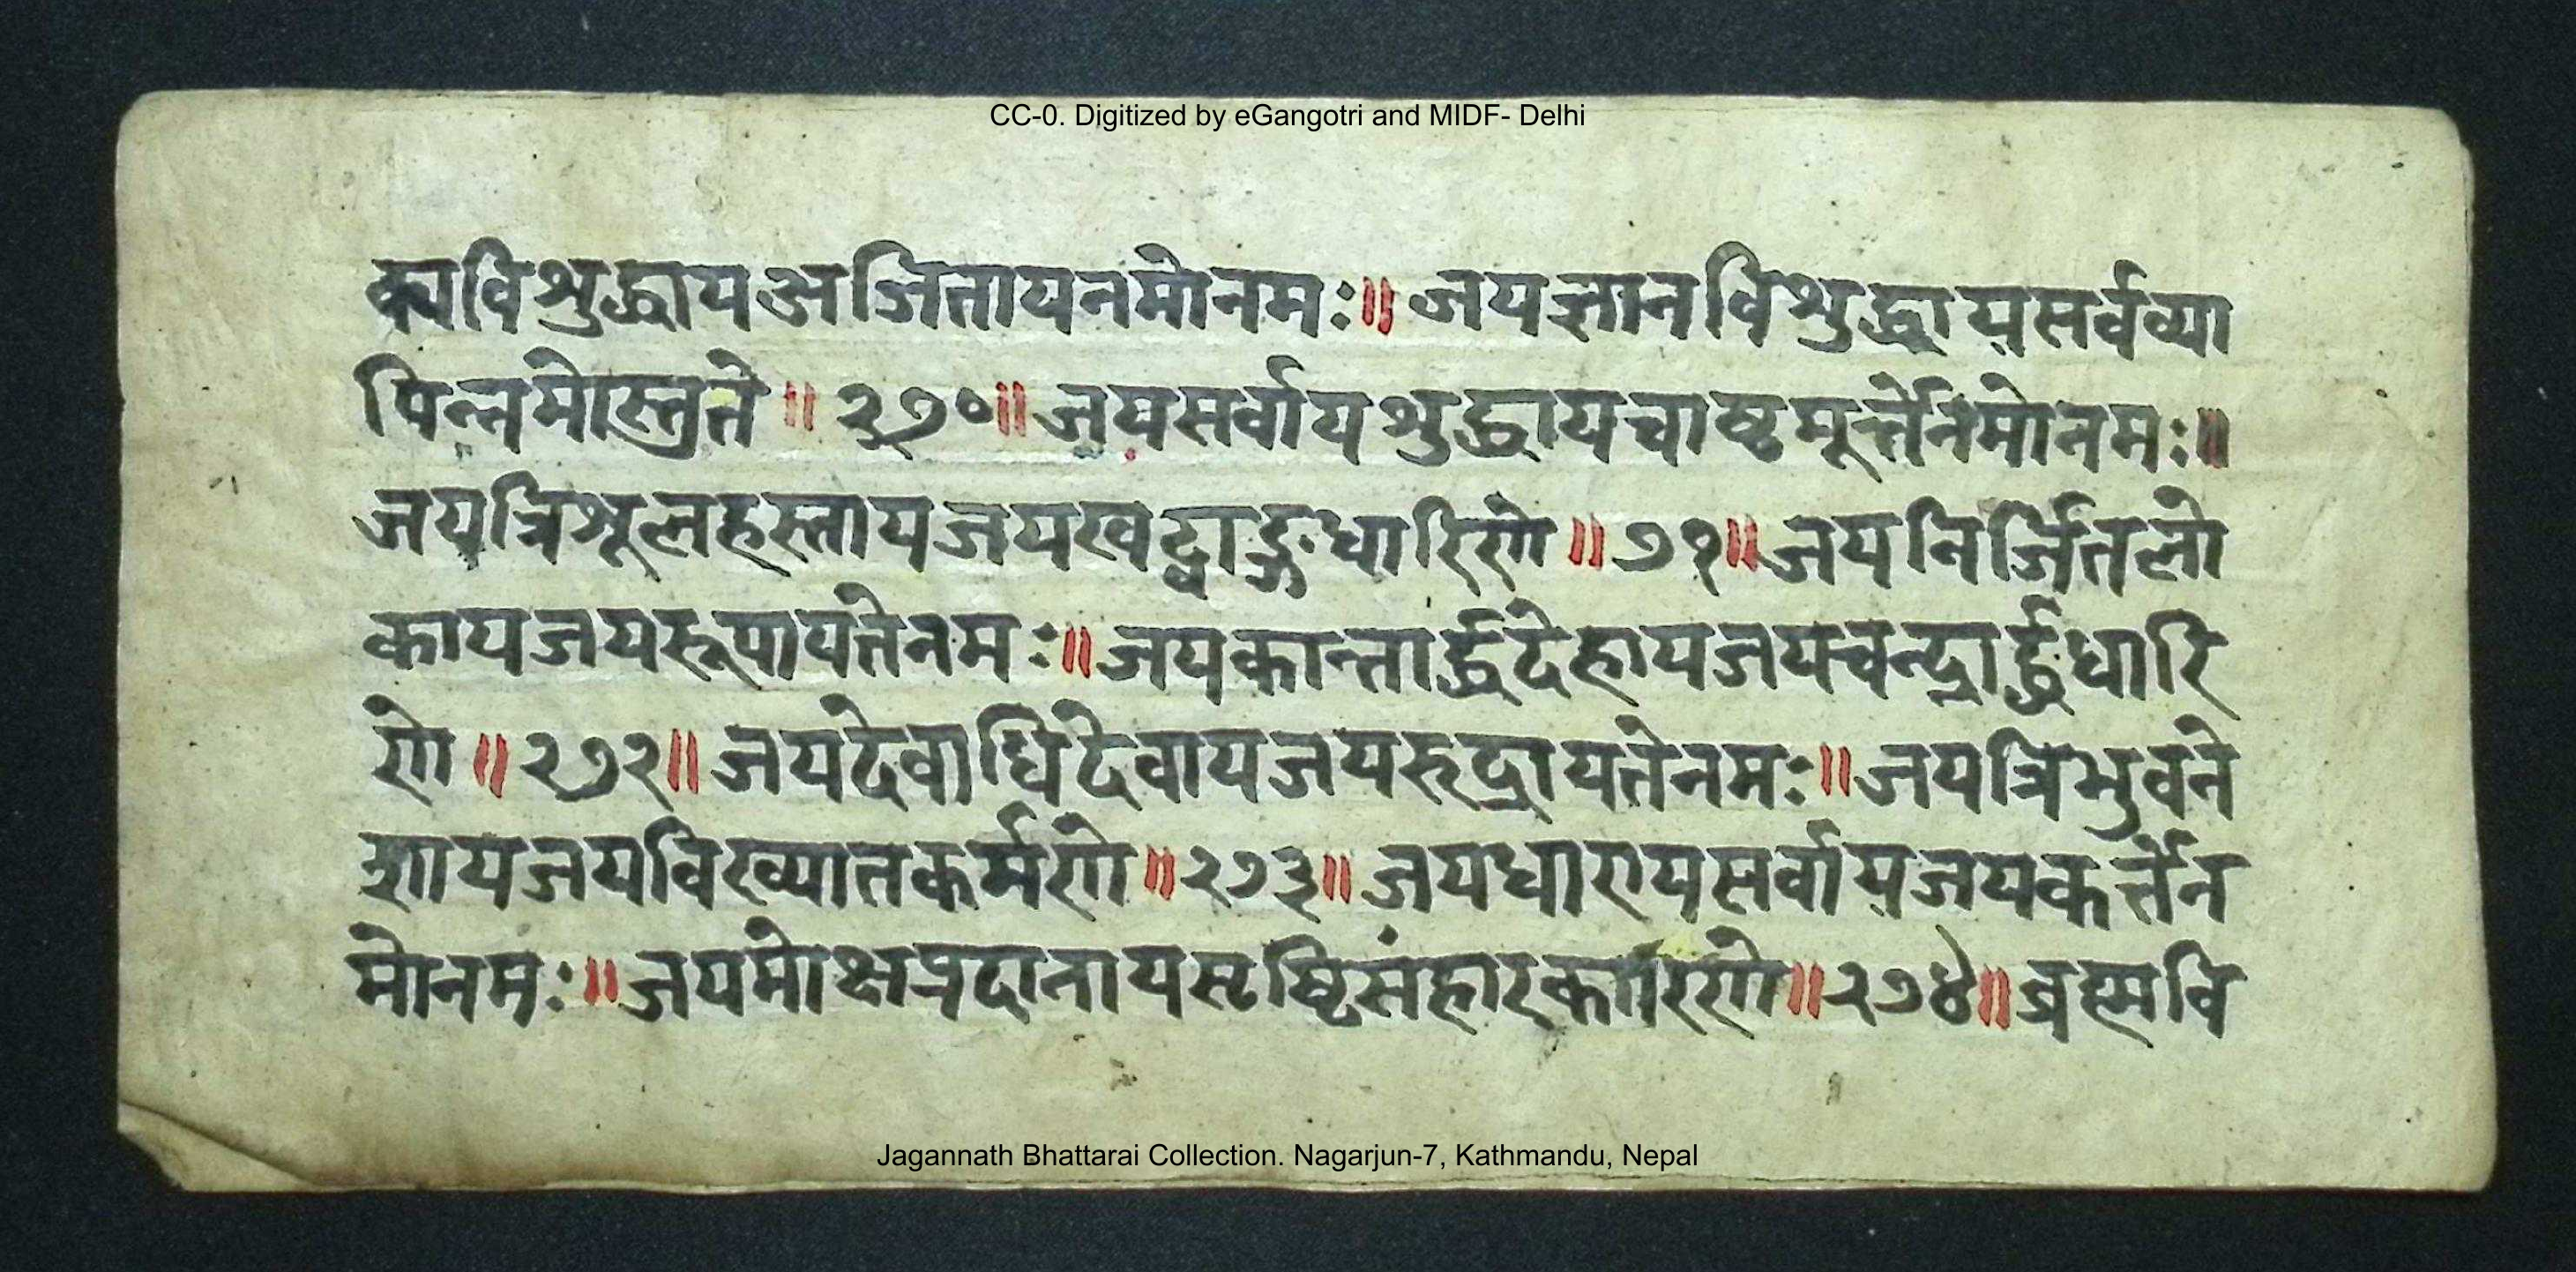 CC-0. Digitized by eGangotri and MIDF- Delhi
क्यविशुद्धायअजितायनमोनमः॥जयज्ञानविशुद्धायसर्वव्या
पिन्नमोस्तुते॥२७०॥जयसर्वायशुद्धायचाष्टमूर्त्तेनमोनमः॥
जयत्रिशूलहस्तायजयखट्वाङ्गधारिणे॥७१॥जयनिर्जितलो
कायजयरूपायतेनमः॥जयकान्तार्द्धदेहायजयचन्द्रार्द्धधारि
णे॥२७२॥जयदेवाधिदेवायजयरूद्रायतेनमः॥जयत्रिभुवने
शायजयविख्यातकर्मणे॥२७३॥जयधारायसर्वायजयकर्त्तेन
मोनमः॥जयमोक्षप्रदानायसृष्टिसंहारकारिणे॥२७४॥ब्रह्मवि
Jagannath Bhattarai Collection. Nagarjun-7, Kathmandu, Nepal